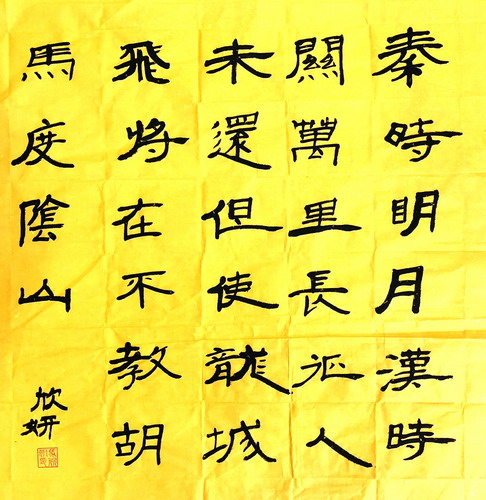 秦時明月漢時
關萬里長征人
未還但使龍城
飛將在不教胡
馬度陰山
欣妍